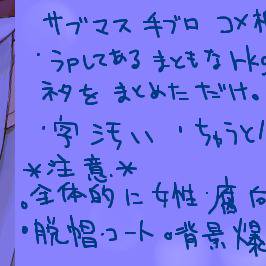 サブマス 手ブロ コメ
・うpしてある まともな rkg
ネタを まとめた だけ。
・字 汚い ・ちゅうと
*注意*
。全体的に 女性・腐 向
・脱帽・コート 。背景 爆